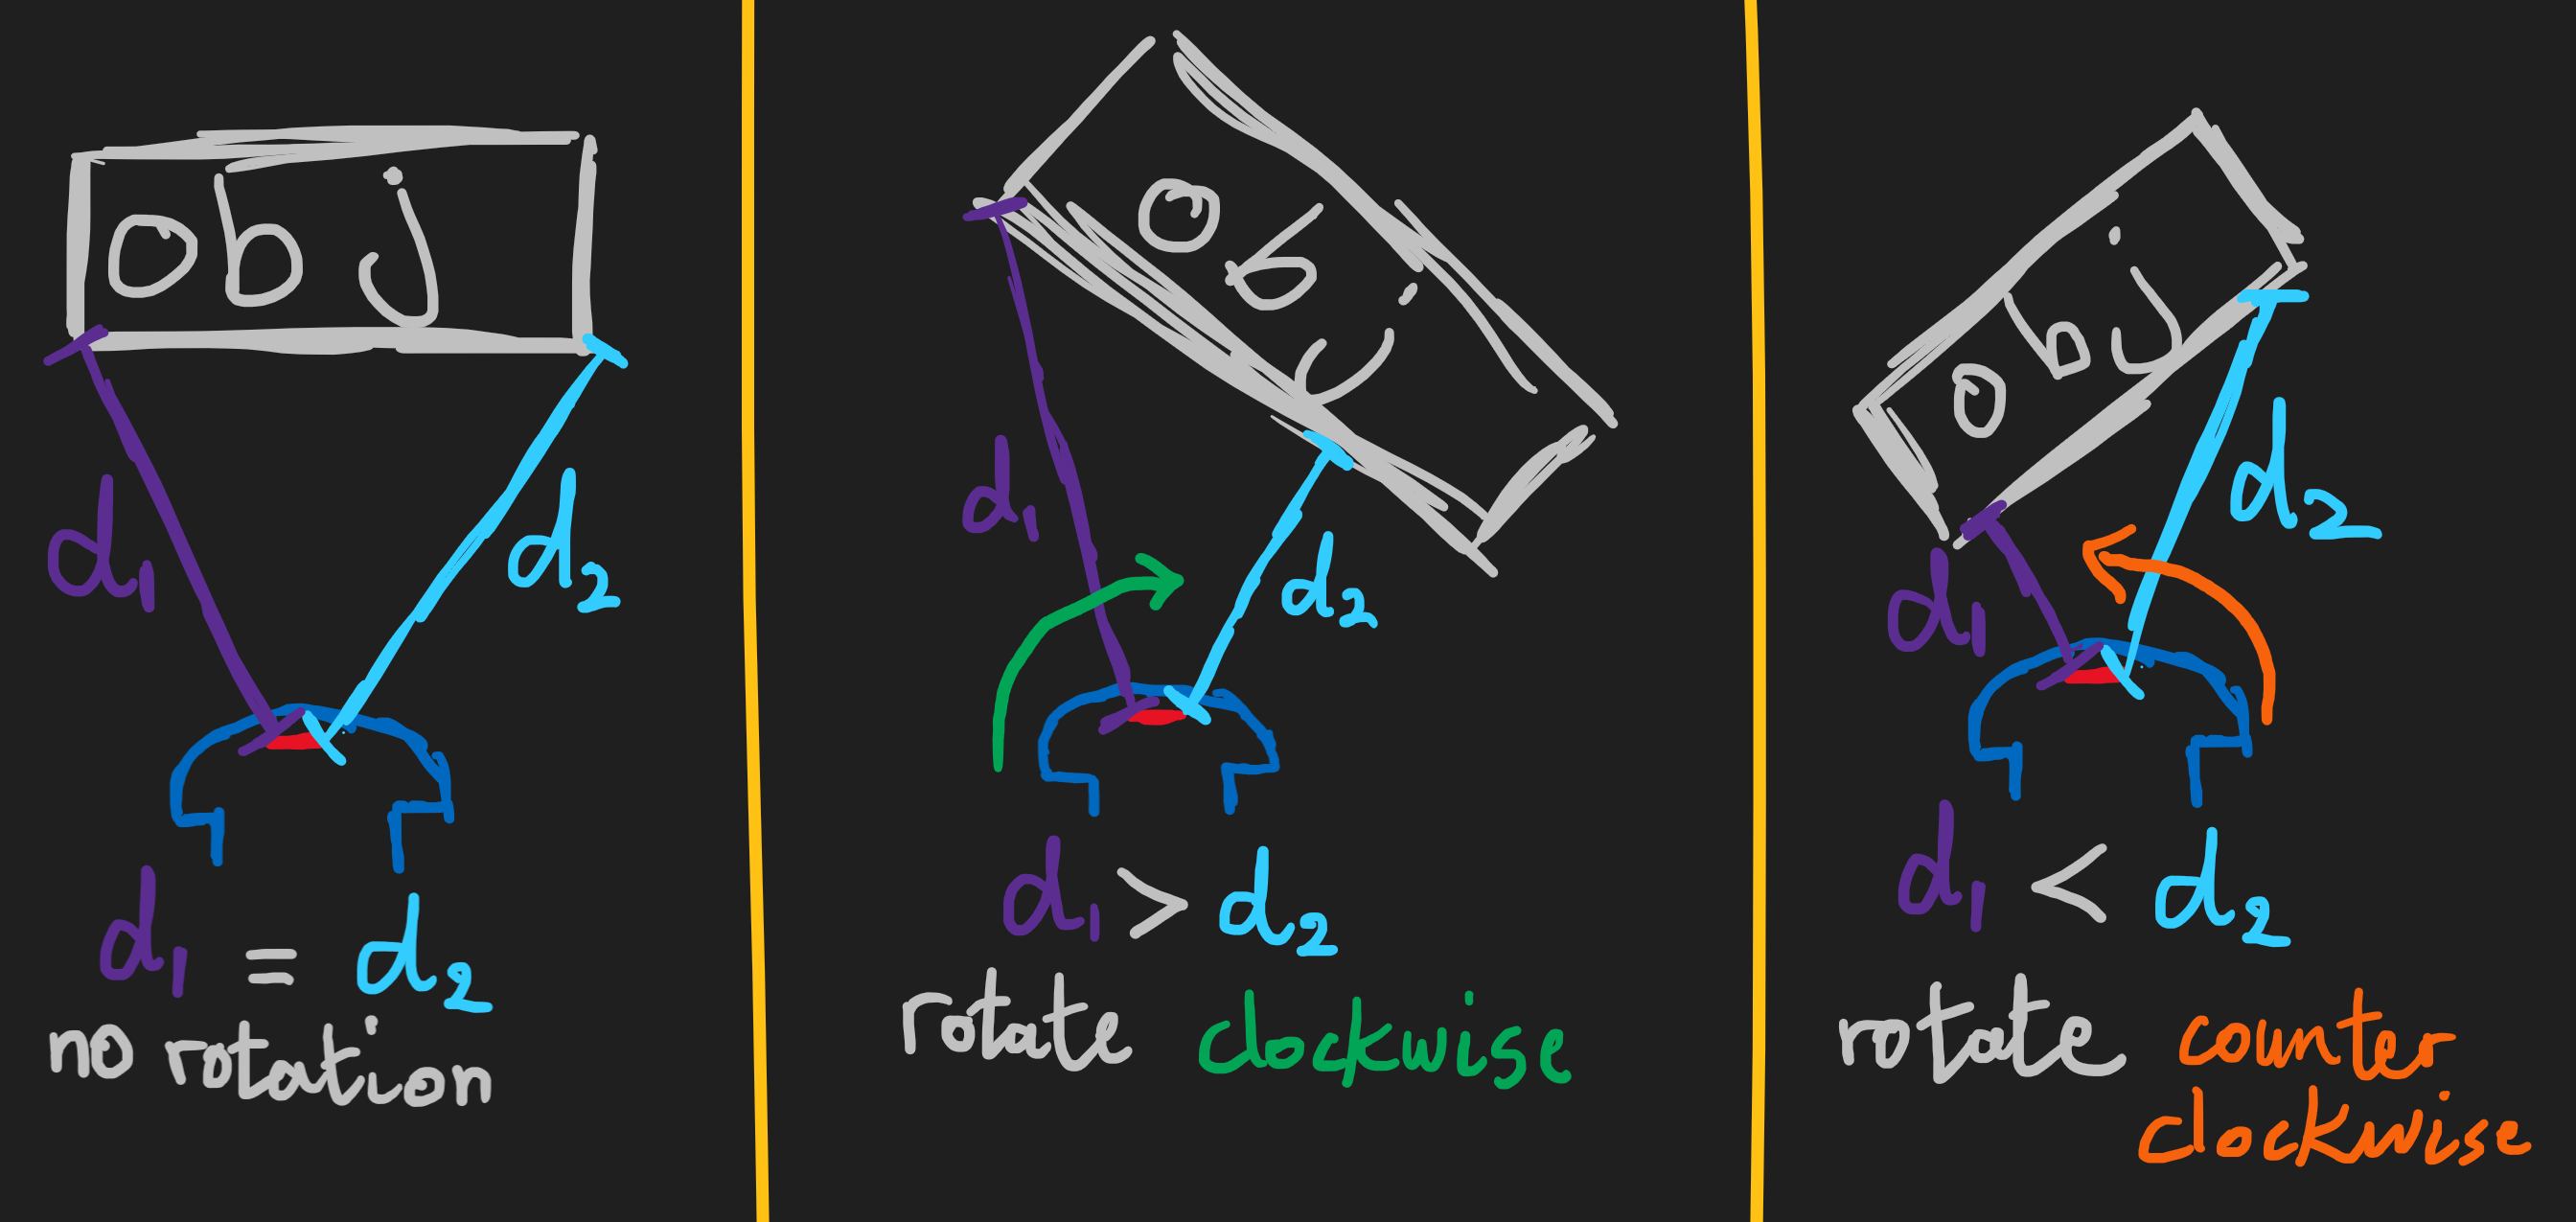 obj
d1
d2
d1 = d2
no rotation
obj
d1
d2
d1 > d2
rotate clockwise
obj
d1
d2
d1 < d2
rotate counter
clockwise